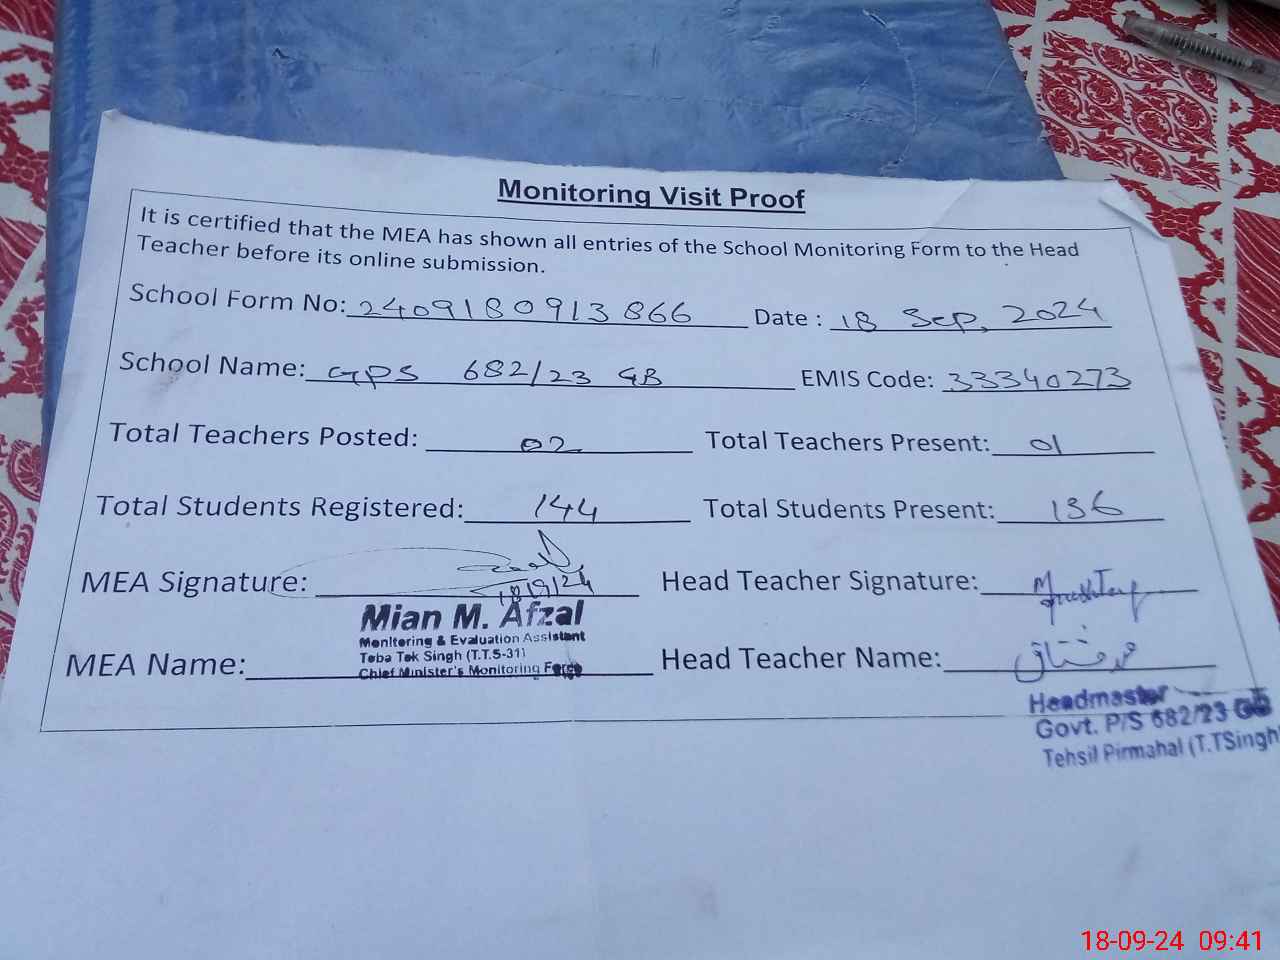 Monitoring Visit Proof
It is certified that the MEA has shown all entries of the School Monitoring Form to the Head
Teacher before its online submission.
School Form No: 2409180913866 Date : 18 Sep, 2024
School Name: GPS 682/23 GB EMIS Code: 33340273
Total Teachers Posted: 02 Total Teachers Present: 01
Total Students Registered: 144 Total Students Present: 136
MEA Signature: 18/9/24 Head Teacher Signature:
Mian M. Afzal
Monitoring & Evaluation Assistant
Toba Tek Singh (T.T.S-31)
Chief Minister's Monitoring Force
MEA Name: Head Teacher Name:
Headmaster
Govt. P/S 682/23 GB
Tehsil Pirmahal (T.TSingh)
18-09-24 09:41